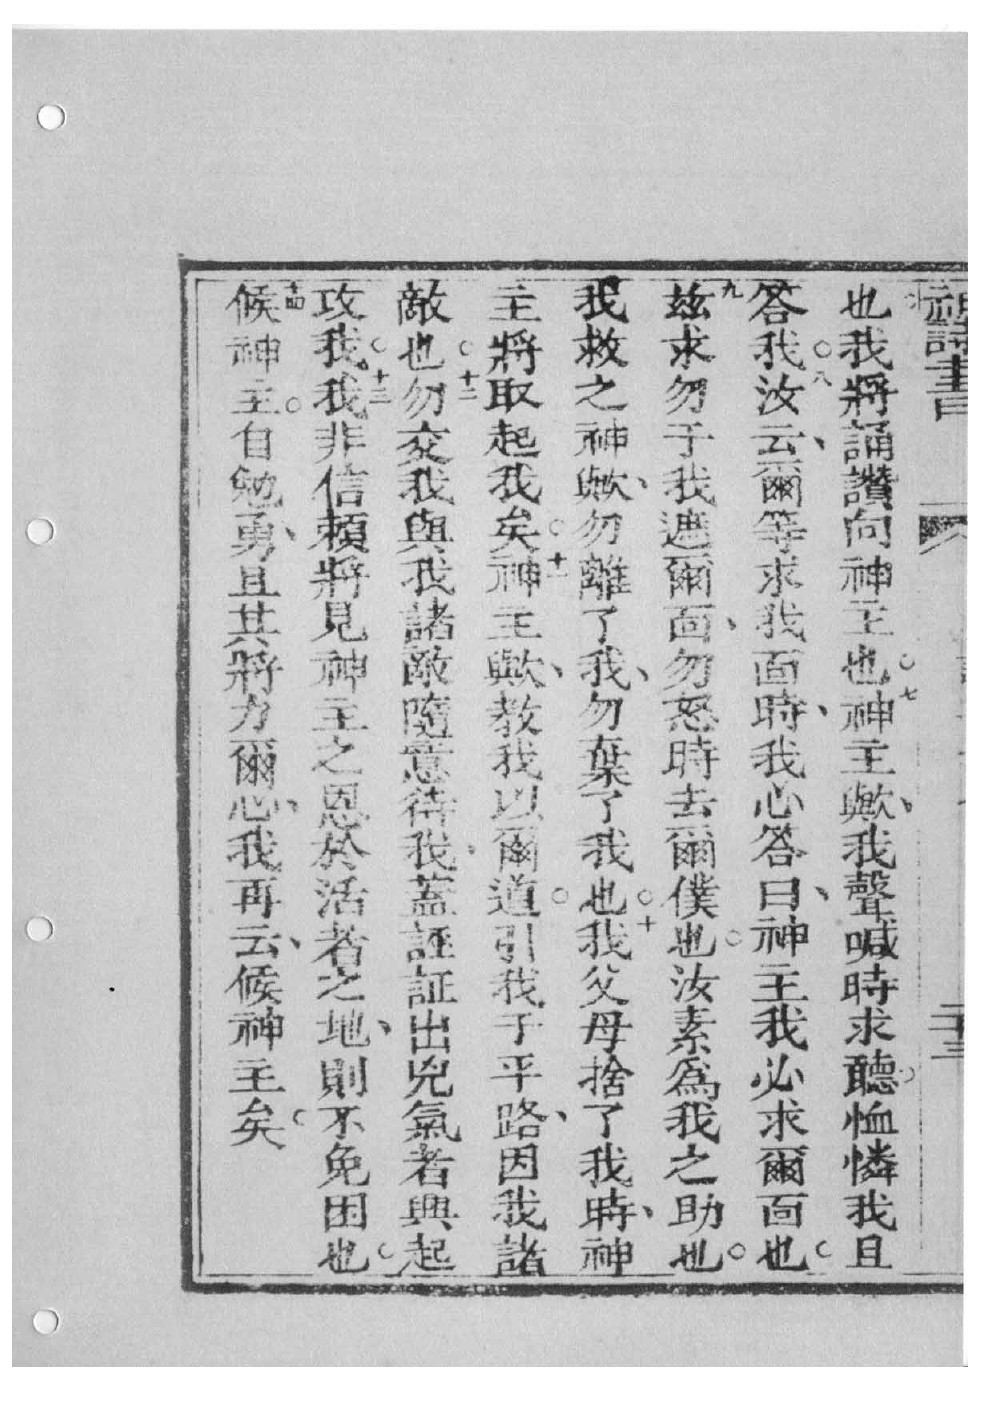 神詩書
也我將誦讚向神主也。七神主歟、我聲喊時求聽。恤憐我且
答我。八汝云、爾等求我面時、我心答曰、神主我必求爾面也。
九兹求勿于我遮爾面、勿怒時去爾僕也。汝素爲我之助也。
我救之神歟、勿離了我、勿棄了我也。十我父母捨了我時、神
主將取起我矣。十一神主歟、教我以爾道。引我于平路、因我諸
敵也。十二勿交我與我諸敵隨意待我、蓋誣証出兇氣者興起
攻我。十三我非信賴將見神主之恩於活者之地、則不免困也。
十四候神主。自勉勇、且其將力爾心、我再云、候神主矣。